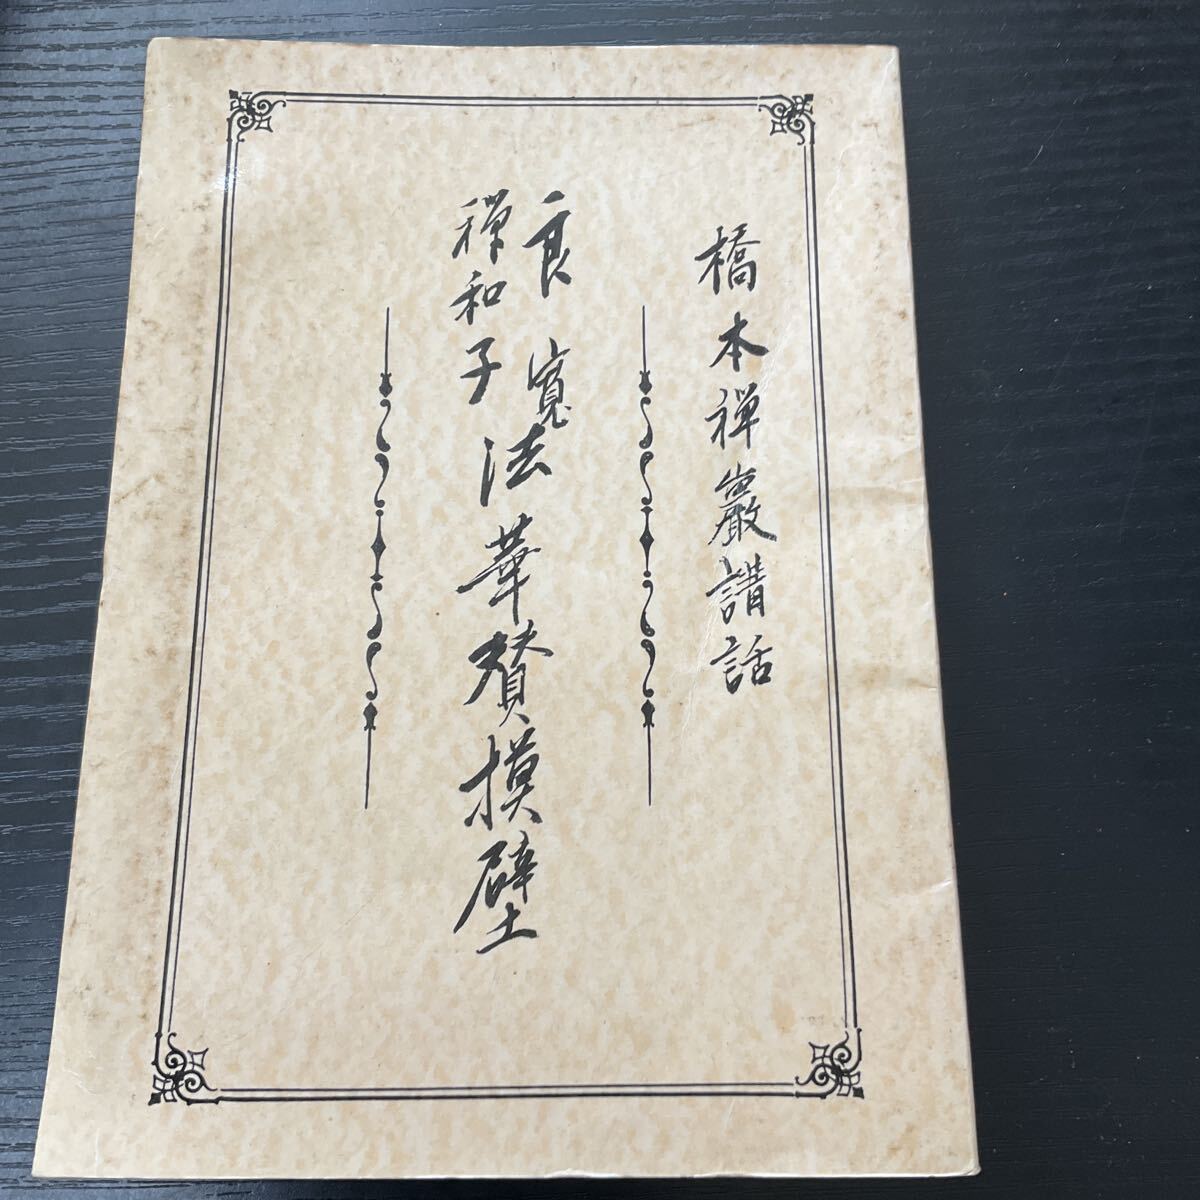 橋本禅巖講話
良寛
禅和子
法華賛模壁